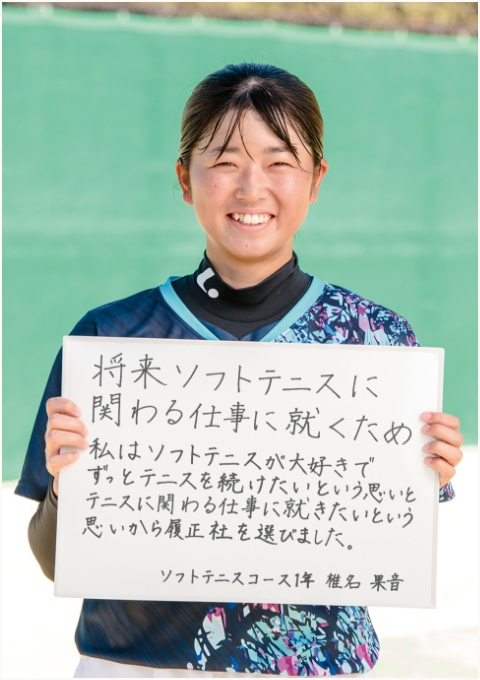 将来ソフトテニスに
関わる仕事に就くため
私はソフトテニスが大好きで
ずっとテニスを続けたいという思いと
テニスに関わる仕事に就きたいという
思いから履正社を選びました。
ソフトテニスコース1年 椎名 果音